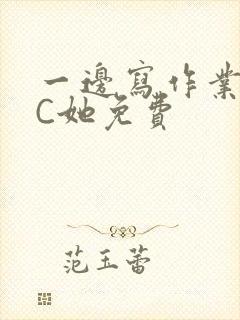 一邊寫作業
C她免費
范玉蕾